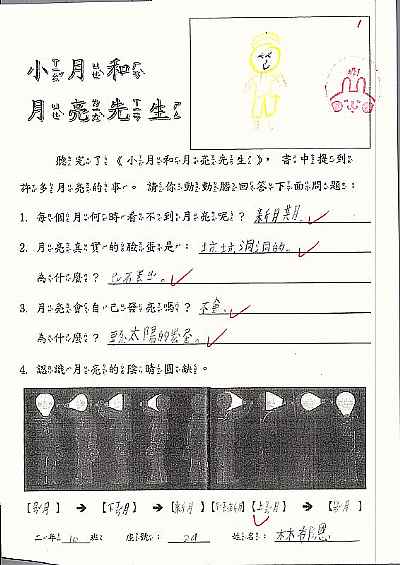 小月和
月亮先生
聽完了《小月和月亮先生》，書中提到
許多月亮的事。請你動動腦回答下面問題：
1. 每個月何時看不到月亮呢？新月期。
2. 月亮真實的臉蛋是：坑坑洞洞的。
為什麼？
3. 月亮會自己發亮嗎？不會。
為什麼？太陽的
4. 認識月亮的陰晴圓缺。
【滿月】→【下弦月】→【新月】【上弦月】→【滿月】
二年 10 班 座號： 29 姓名： 林